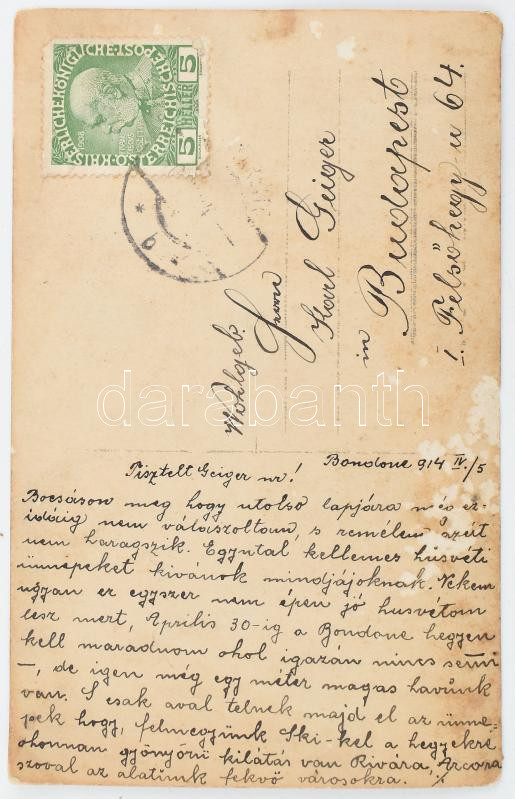 KAISERLICHE KÖNIGLICHE ÖSTERREICHISCHE POST
5 HELLER 5
1908
Wohlgeb.
Herrn
Karl Geiger
in Budapest
I. Felsőhegy-u 64.
darabanth
Bondone 914 IV./5
Tisztelt Geiger ur!
Bocsáson meg hogy utolso lapjára még ez-
idáig nem válaszoltam, s remélem azért
nem haragszik. Egyutal kellemes húsvéti
ünnepeket kivánok mindjájoknak. Nekem
ugyan ez egyszer nem épen jó husvétom
lesz mert, Április 30-ig a Bondone hegyen
kell maradnom ahol igazán nincs semmi
–, de igen még egy méter magas havunk
van. S csak aval telnek majd el az ünne-
pek hogy, felmegyünk Ski-kel a hegyekre
ahonnan gyönyörü kilátás van Rivára,
szoval az alattunk fekvö városokra.